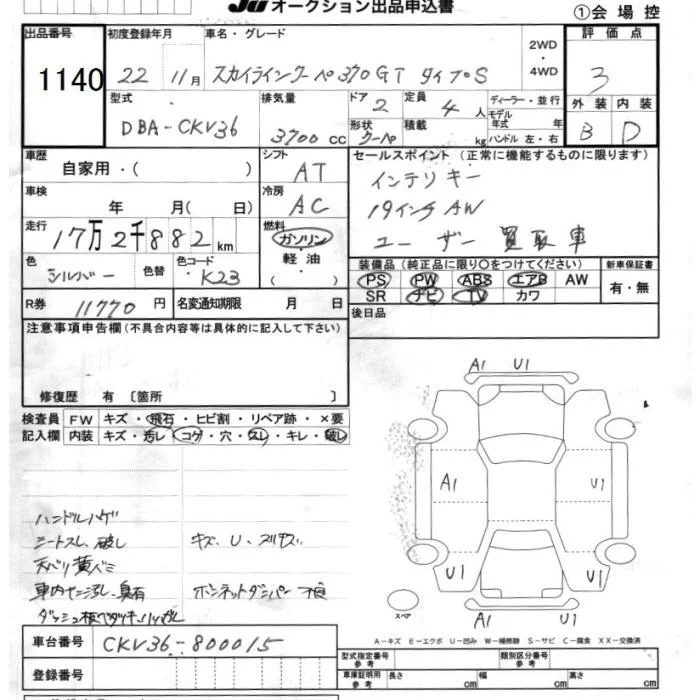 JU オークション出品申込書
①会場控
出品番号 初度登録年月 車名・グレード 2WD・4WD 評価点
1140 22 11月 スカイラインクーペ370GT タイプS 3
型式 排気量 ドア 2 定員 4人 ディーラー・並行 外装 内装
DBA-CKV36 3700cc 形状 クーペ 積載 kg モデル年式 年 ハンドル 左・右 B D
車歴 シフト セールスポイント(正常に機能するものに限ります)
自家用・( ) AT インテリキー
車検 冷房 19インチAW
年 月( 日) AC ユーザー買取車
走行 燃料
17万2千882km ガソリン・軽油・( )
色 色替 色コード 装備品(純正品に限り○をつけてください) 新車保証書
シルバー K23 PS PW ABS エアB AW 有・無
R券 11770円 名変通知期限 月 日 SR ナビ TV カワ
注意事項申告欄(不具合内容等は具体的に記入して下さい) 後日品
修復歴 有 〔箇所 〕
検査員 FW キズ・飛石・ヒビ割・リペア跡・×要
記入欄 内装 キズ・汚レ・コゲ・穴・スレ・キレ・破レ
A1 U1
A1 U1
U1 U1
A1 U1
スペア
ハンドルハゲ
シートスレ、破レ キズ、U、スリキズ
天バリ黄バミ
車内ヤニ汚レ、臭有 ボンネットダンパー不良
A-キズ E-エクボ U-凹み W-補修跡 S-サビ C-腐食 XX-交換済
車台番号 CKV36-800015
型式指定番号 参考 類別区分番号 参考
登録番号 車庫証明用 参考 長さ cm 幅 cm 高さ cm